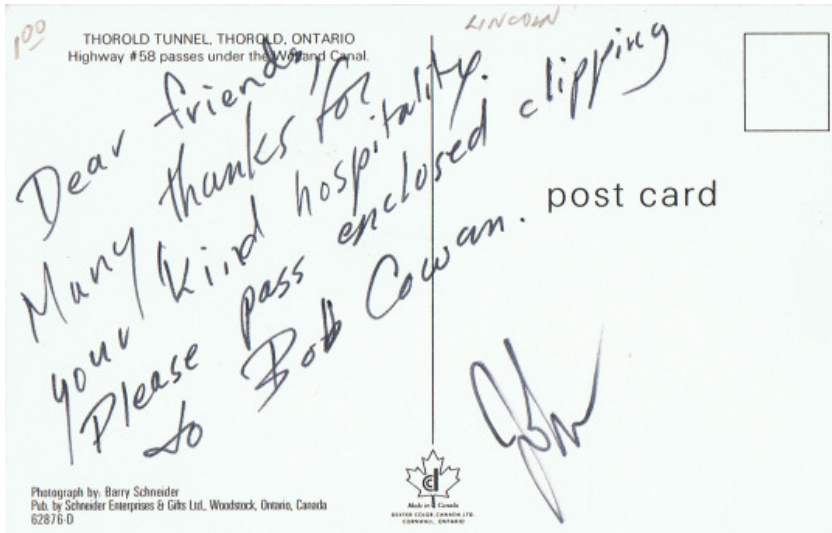 1.00
LINCOLN
THOROLD TUNNEL, THOROLD, ONTARIO
Highway #58 passes under the Welland Canal.
Dear friends,
Many thanks for
your kind hospitality.
Please pass enclosed clipping
to Bob Cowan.
John
post card
Photograph by: Barry Schneider
Pub. by Schneider Enterprises & Gifts Ltd., Woodstock, Ontario, Canada
62876-D
Made in Canada
DEXTER COLOR CANADA LTD.
CORNWALL, ONTARIO